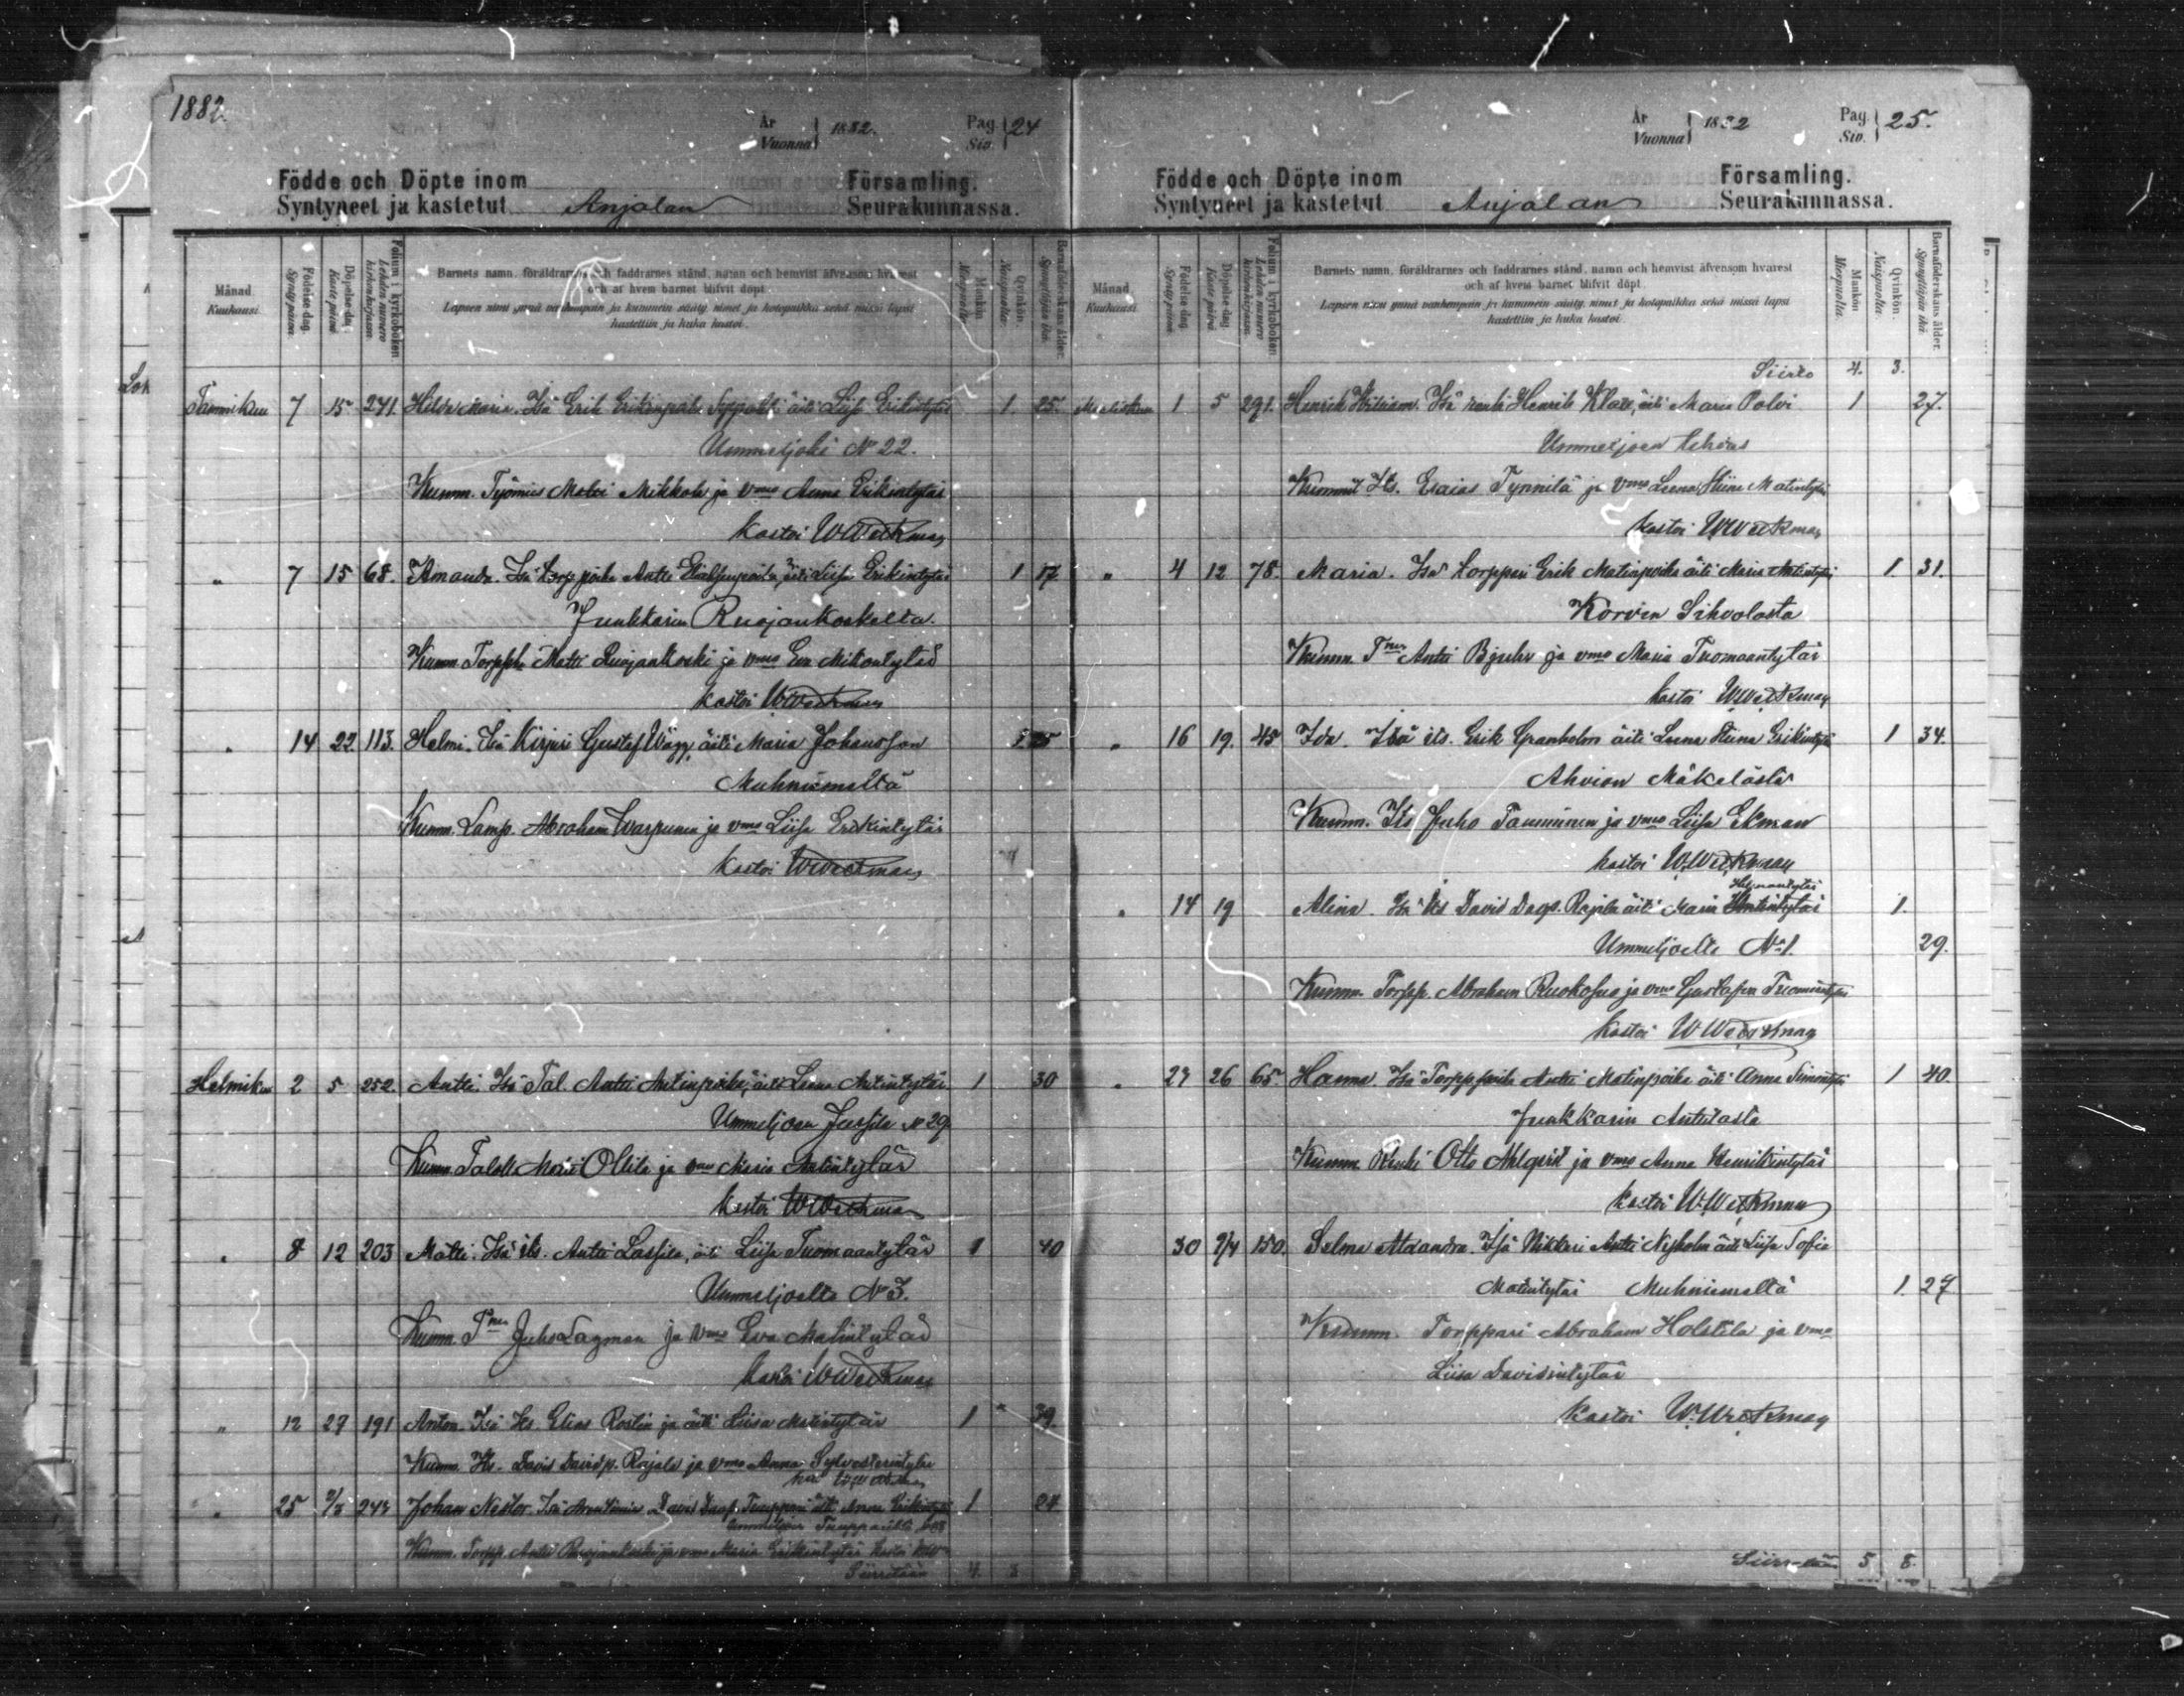 1882.
År
Vuonna } 1882.
Pag.
Siv. } 24
Födde och Döpte inom Församling.
Syntyneet ja kastetut Anjalan Seurakunnassa.
Månad.
Kuukausi.
Födelse-dag.
Syntypäivä.
Döpelse-dag.
Kaste päivä.
Folium i kyrkoboken
Lehden numero kirkonkirjassa.
Barnets namn, föräldrarnes och faddrarnes stånd, namn och hemvist äfvensom hvarest
och af hvem barnet blifvit döpt
Lapsen nimi ynnä vanhempain ja kummein sääty, nimet ja kotopaikka sekä missä lapsi
kastettiin ja kuka kastoi.
Mankön.
Miespuolta.
Qvinkön.
Naispuolta.
Barnaföderskans ålder.
Synnyttäjän ikä.
Tammikuu 7 15 241. Hilda Maria. Isä Erik Erikinpoika Seppälä äiti Liisa Erikintytär 1 25.
Ummeljoki No 22.
Kumm. Työmies Matti Mikkola ja vmo Anna Erikintytär
kastoi W Weckman
" 7 15 68. Amanda. Isä Antti äiti Liisa Erikintytär 1 17
Junkkarin Ruojankoskelta.
Kumm. Matti Ruojankoski ja vmo Eva Mikontytär
kastoi W Weckman
" 14 22 113. Helmi. Isä Kirjuri Gustaf Wägg, äiti Maria Johansson 1 25
Muhniemeltä
Kumm. Lamp. Abraham Warpunen ja vmo Liisa Erikintytär
kastoi W Weckman
Helmikuu 2 5 252. Antti. Isä Tal. Antti Antinpoika, äiti Leena Antintytär 1 30
Ummeljoen Jussila No 29
Kumm. Matti Ollila ja vmo Maria Antintytär
kastoi W Weckman
" 8 12 203 Matti. Isä its. Antti Lassila, äiti Liisa Tuomaantytär 1 40
Ummeljoelta No 3.
Kumm. Tmes Juho Lagman ja vmo Eva Matintytär
kastoi W Weckman
" 12 27 191 Anton. Isä Its. Elias Rostin ja äiti Liisa Matintytär 1 39.
Kumm. Its. David Davidp. Rajala ja vmo Anna Sylvesterintytär
kas W Weckman
" 25 2/3 Johan Nestor. Isä David äiti Anna Erikintytär 1 24
Kumm. Torpp. Antti Ruojankoski ja vmo Maria Erikintytär kastoi
Siirretään 4. 3
År
Vuonna } 1882
Pag.
Siv. } 25.
Födde och Döpte inom Församling.
Syntyneet ja kastetut Anjalan Seurakunnassa.
Månad.
Kuukausi.
Födelse-dag.
Syntypäivä.
Döpelse-dag.
Kaste päivä.
Folium i kyrkoboken
Lehden numero kirkonkirjassa.
Barnets namn, föräldrarnes och faddrarnes stånd, namn och hemvist äfvensom hvarest
och af hvem barnet blifvit döpt
Lapsen nimi ynnä vanhempain ja kummein sääty, nimet ja kotopaikka sekä missä lapsi
kastettiin ja kuka kastoi.
Mankön
Miespuolta.
Qvinkön.
Naispuolta.
Barnaföderskans ålder.
Synnyttäjän ikä.
Siirto 4. 3.
Maaliskuu 1 5 291. Henrik William. Isä renki Henrik äiti Maria Polvi 1 27.
Ummeljoen tehdas
Kummit Its. Esaias Tynnilä ja vmo Leena Stiina Matintytär
kastoi W Weckman
" 4 12 78. Maria. Isä torppari Erik Matinpoika äiti Maria Antintytär 1. 31.
Korven Sihvolasta
Kumm. Tmes Antti ja vmo Maria Tuomaantytär
kastoi W Weckman
" 16 19. 45 Ida. Isä its. Erik Granholm äiti Leena Stiina Erikintytär 1 34.
Ahvion Mäkelästä
Kumm. Its Juho Tamminen ja vmo Liisa Ekman
kastoi W. Weckman
" 14 19 Alina. Isä Its David Rajala äiti Maria Antintytär 1.
Ummeljoelta No 1. 29.
Kumm. Torpp. Abraham Ruokosuo ja vmo Gustafva Tuomaantytär
kastoi W Weckman
" 23 26 65. Hanna. Isä Torpp poika Antti Matinpoika äiti Anna Simontytär 1 40.
Junkkarin Anttilasta
Kumm. Renki Otto Ahlqvist ja vmo Anna Henrikintytär
kastoi W. Weckman
30 2/4 150. Selma Alexandra. Isä Nikkari Antti Nyholm äiti Liisa Sofia
Matintytär Muhniemeltä 1. 27
Kumm. Torppari Abraham Holstila ja vmo
Liisa Davidintytär
kastoi W. Weckman
Siirretään 5 8.